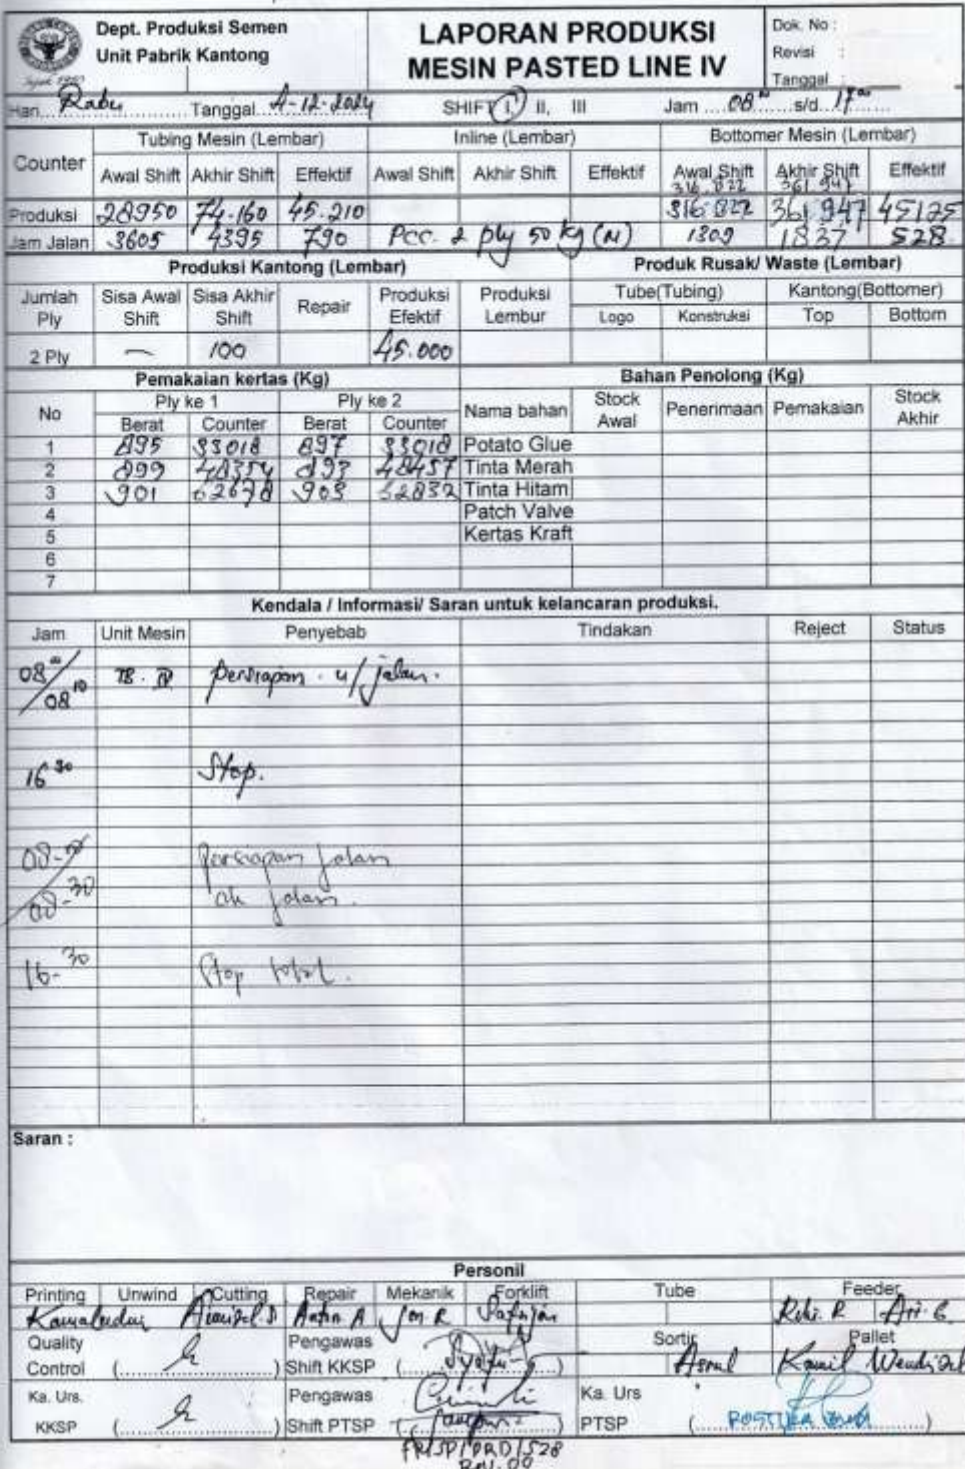 Dept. Produksi Semen
Unit Pabrik Kantong
LAPORAN PRODUKSI
MESIN PASTED LINE IV
Dok. No :
Revisi :
Tanggal :
Hari... Rabu Tanggal 4-12-2024 SHIFT I, II, III Jam 08.00 s/d 17.00
Counter Tubing Mesin (Lembar) Inline (Lembar) Bottomer Mesin (Lembar)
Awal Shift Akhir Shift Effektif Awal Shift Akhir Shift Effektif Awal Shift Akhir Shift Effektif
316.822 361.947
Produksi 28950 74.160 45.210 316.822 361.947 45125
Jam Jalan 3605 4395 790 PCC. 2 ply 50 kg (N) 1309 1837 528
Produksi Kantong (Lembar) Produk Rusak/ Waste (Lembar)
Jumlah Ply Sisa Awal Shift Sisa Akhir Shift Repair Produksi Efektif Produksi Lembur Tube(Tubing) Kantong(Bottomer)
Logo Konstruksi Top Bottom
2 Ply — 100 45.000
Pemakaian kertas (Kg) Bahan Penolong (Kg)
No Ply ke 1 Ply ke 2 Nama bahan Stock Awal Penerimaan Pemakaian Stock Akhir
Berat Counter Berat Counter
1 895 33018 897 33018 Potato Glue
2 899 48354 893 48457 Tinta Merah
3 901 62678 903 62832 Tinta Hitam
4 Patch Valve
5 Kertas Kraft
6
7
Kendala / Informasi/ Saran untuk kelancaran produksi.
Jam Unit Mesin Penyebab Tindakan Reject Status
08.00/08.10 TB. IV Persiapan u/ jalan.
16.30 Stop.
08-00/08-30 Persiapan jalan
ok jalan.
16-30 Stop total.
Saran :
Personil
Printing Unwind Cutting Repair Mekanik Forklift Tube Feeder
Kamaludin Anton A Jon. R Safrijon Robi. R Ari G
Quality Control (............) Pengawas Shift KKSP (............) Sortir Pallet
Asrul Kamil Wendizal
Ka. Urs. KKSP (............) Pengawas Shift PTSP (............) Ka. Urs PTSP (............)
FR/SP/PRD/528
Rev. 00